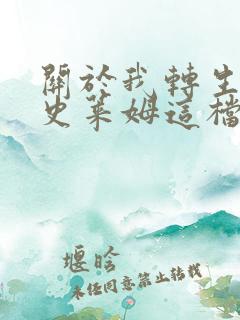 關於我轉生
史萊姆這檔
堰晗
未经同意禁止转载